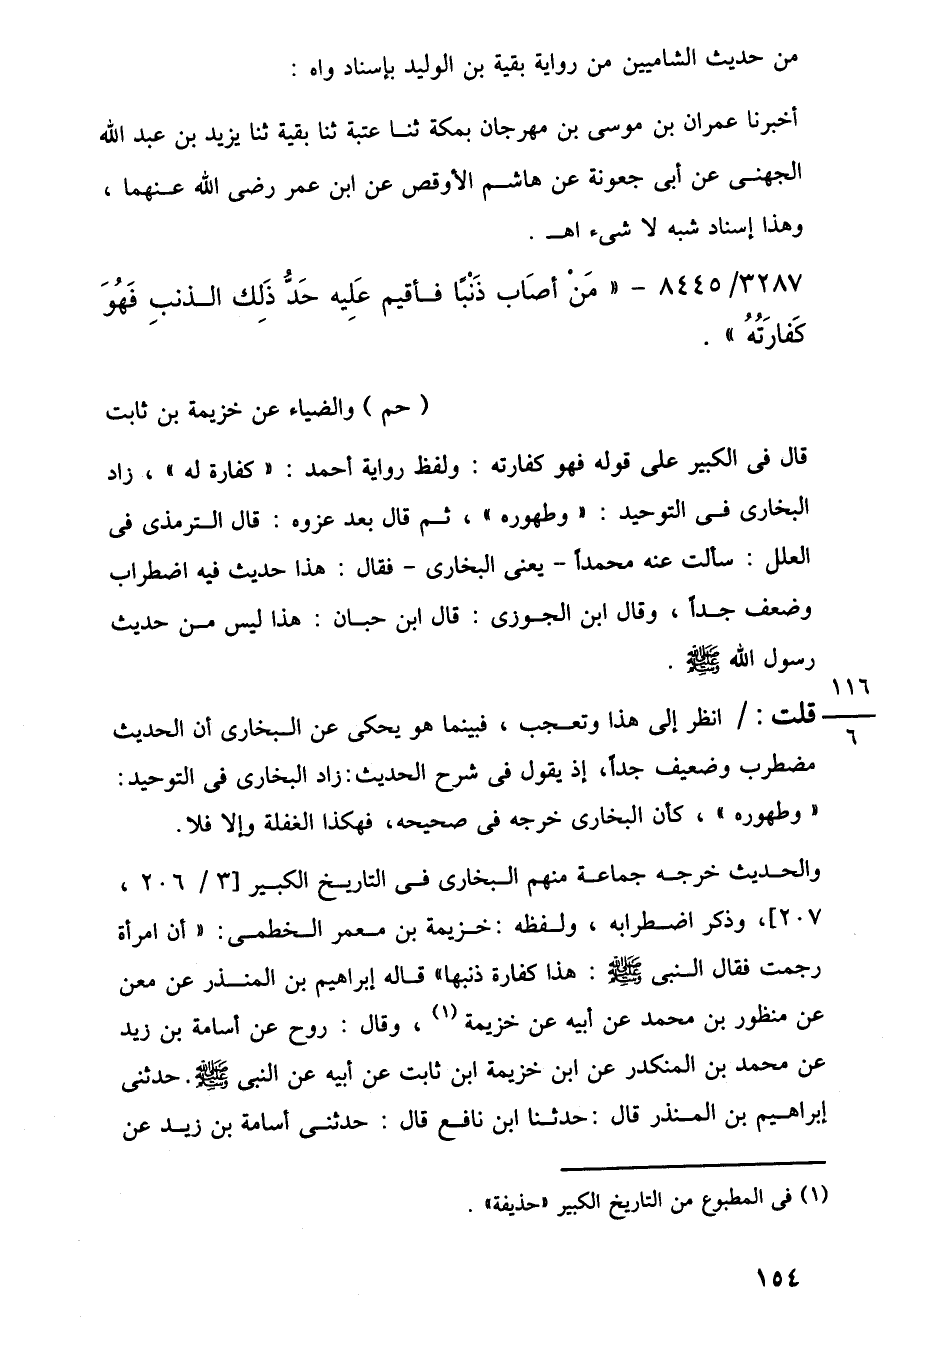 من حديث الشاميين من رواية بقية بن الوليد بإسناد واه :
أخبرنا عمران بن موسى بن مهرجان بمكة ثنا عتبة ثنا بقية ثنا يزيد بن عبد الله
الجهنى عن أبى جعونة عن هاشم الأوقص عن ابن عمر رضى الله عنهما ،
وهذا إسناد شبه لا شىء اهـ .
٨٤٤٥/٣٢٨٧ – « مَنْ أصَاب ذَنْبًا فأقيم عَلَيه حَدُّ ذَلِك الذنبِ فَهُوَ
كَفارَتُهُ » .
( حم ) والضياء عن خزيمة بن ثابت
قال فى الكبير على قوله فهو كفارته : ولفظ رواية أحمد : « كفارة له » ، زاد
البخارى فى التوحيد : « وطهوره » ، ثم قال بعد عزوه : قال الترمذى فى
العلل : سألت عنه محمداً – يعنى البخارى – فقال : هذا حديث فيه اضطراب
وضعف جداً ، وقال ابن الجوزى : قال ابن حبان : هذا ليس من حديث
رسول الله ﷺ .
١١٦
قلت : / انظر إلى هذا وتعجب ، فبينما هو يحكى عن البخارى أن الحديث
٦
مضطرب وضعيف جداً، إذ يقول فى شرح الحديث: زاد البخارى فى التوحيد:
« وطهوره » ، كأن البخارى خرجه فى صحيحه، فهكذا الغفلة وإلا فلا.
والحديث خرجه جماعة منهم البخارى فى التاريخ الكبير [٣ / ٢٠٦ ،
٢٠٧]، وذكر اضطرابه ، ولفظه : خزيمة بن معمر الخطمى : « أن امرأة
رجمت فقال النبى ﷺ : هذا كفارة ذنبها» قاله إبراهيم بن المنذر عن معن
عن منظور بن محمد عن أبيه عن خزيمة (١) ، وقال : روح عن أسامة بن زيد
عن محمد بن المنكدر عن ابن خزيمة ابن ثابت عن أبيه عن النبى ﷺ. حدثنى
إبراهيم بن المنذر قال : حدثنا ابن نافع قال : حدثنى أسامة بن زيد عن
(١) فى المطبوع من التاريخ الكبير «حذيفة» .
١٥٤